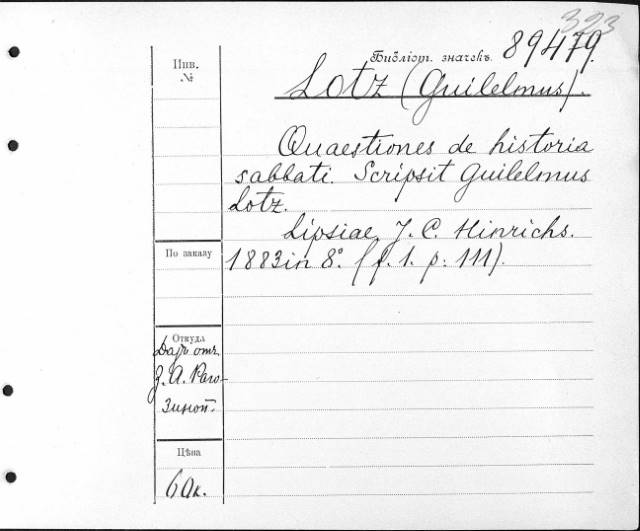 323
Библіот. значекъ. 89479.
Инв.
№
Lotz (Guilelmus).
Quaestiones de historia
sabbati. Scripsit Guilelmus
Lotz.
Lipsiae, J. C. Hinrichs.
По заказу
1883 in 8º. (f. 1. p. 111).
Откуда
Даръ отъ
З. А. Раго-
зиной.
Цѣна
60к.